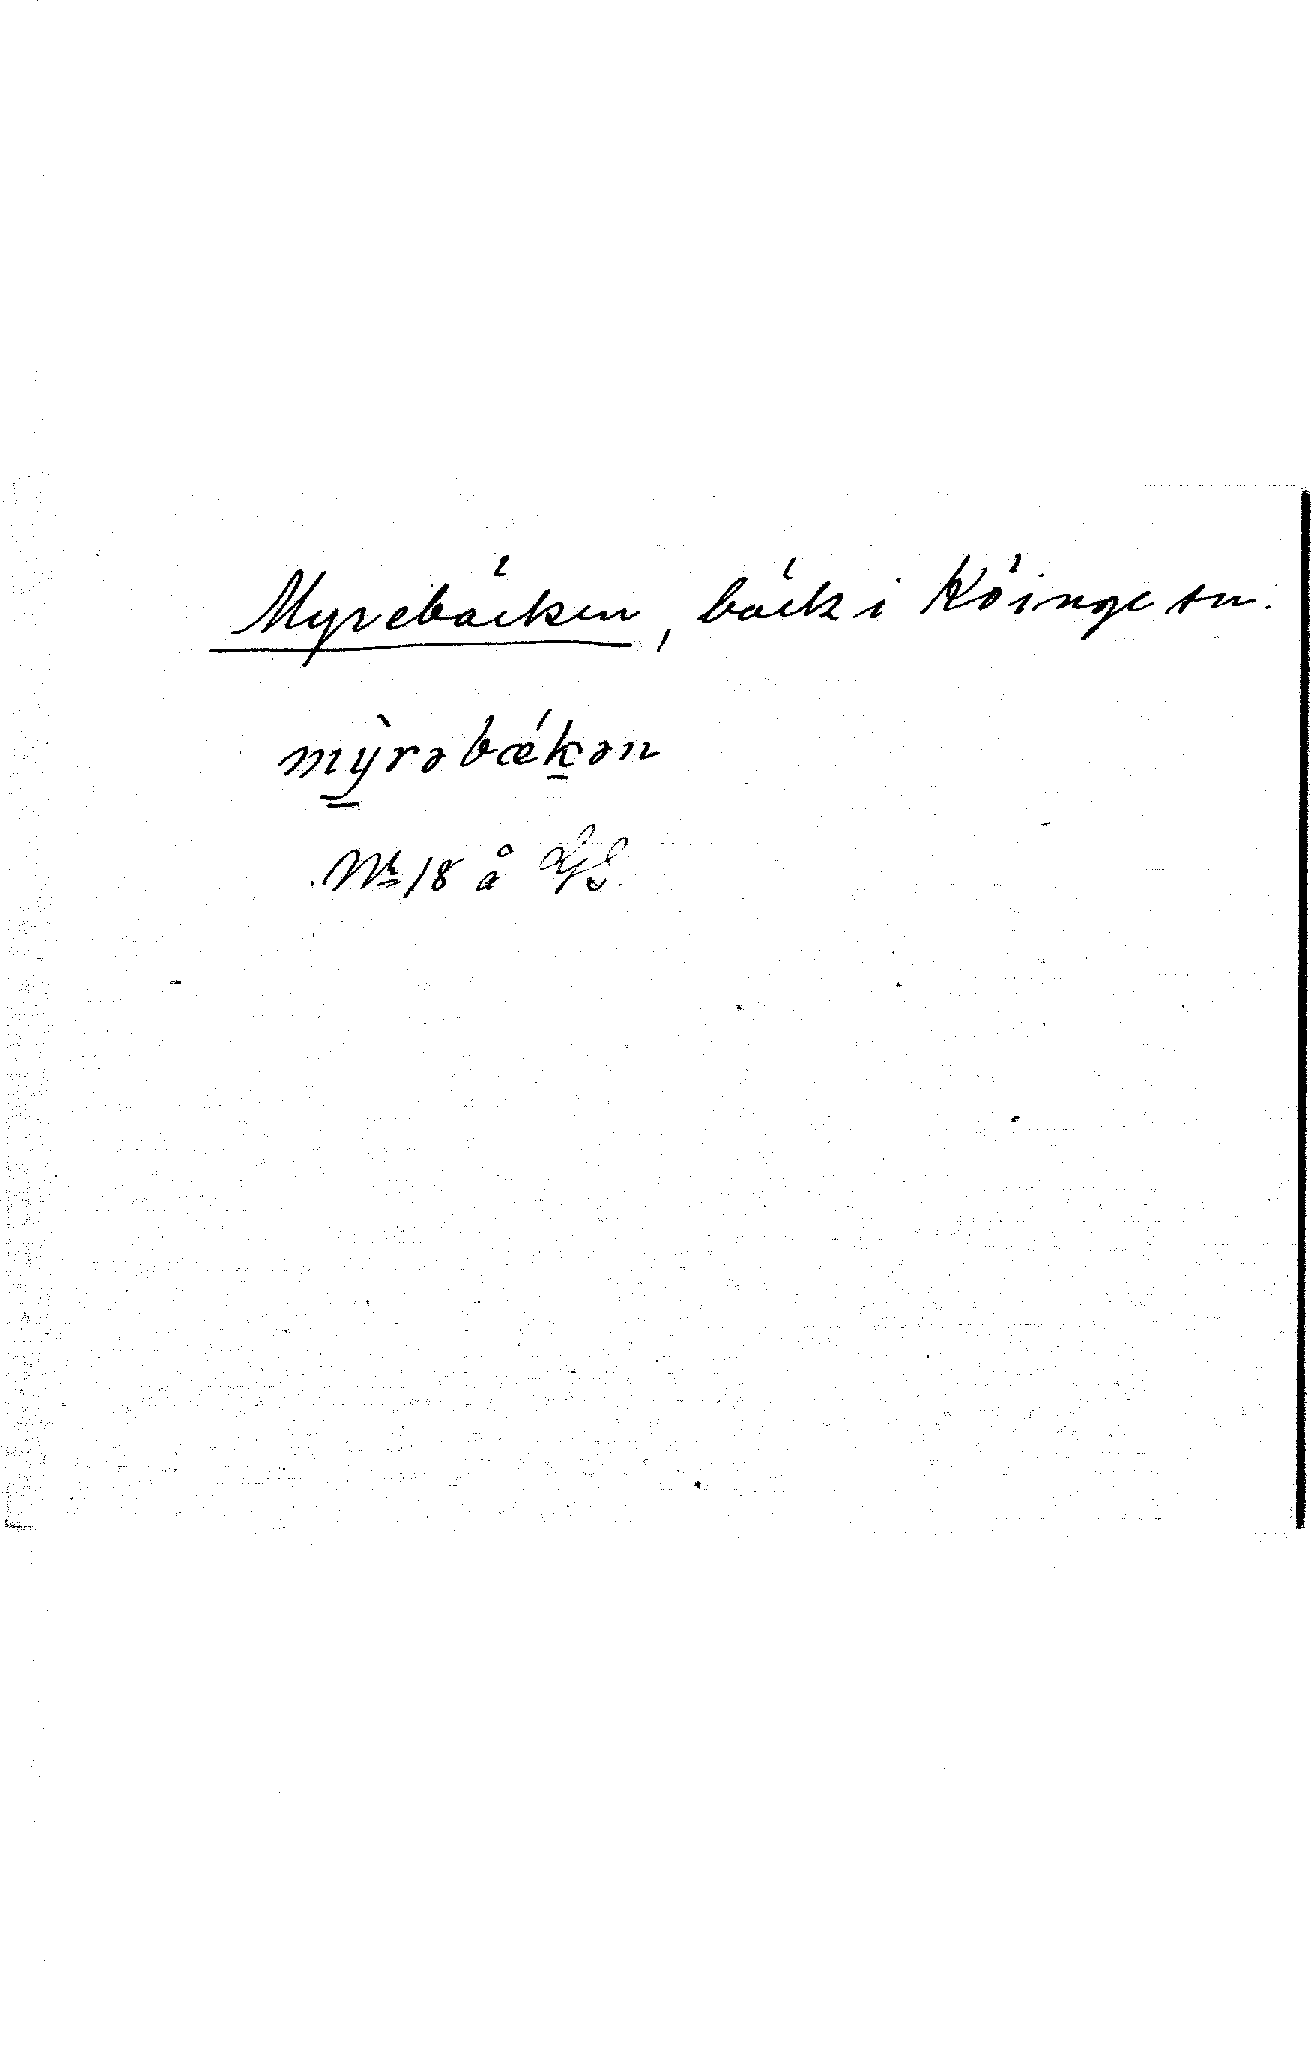 Myrebäcken, bäck i Köinge sn.
mỳrəbǽkən
Nr 18 å